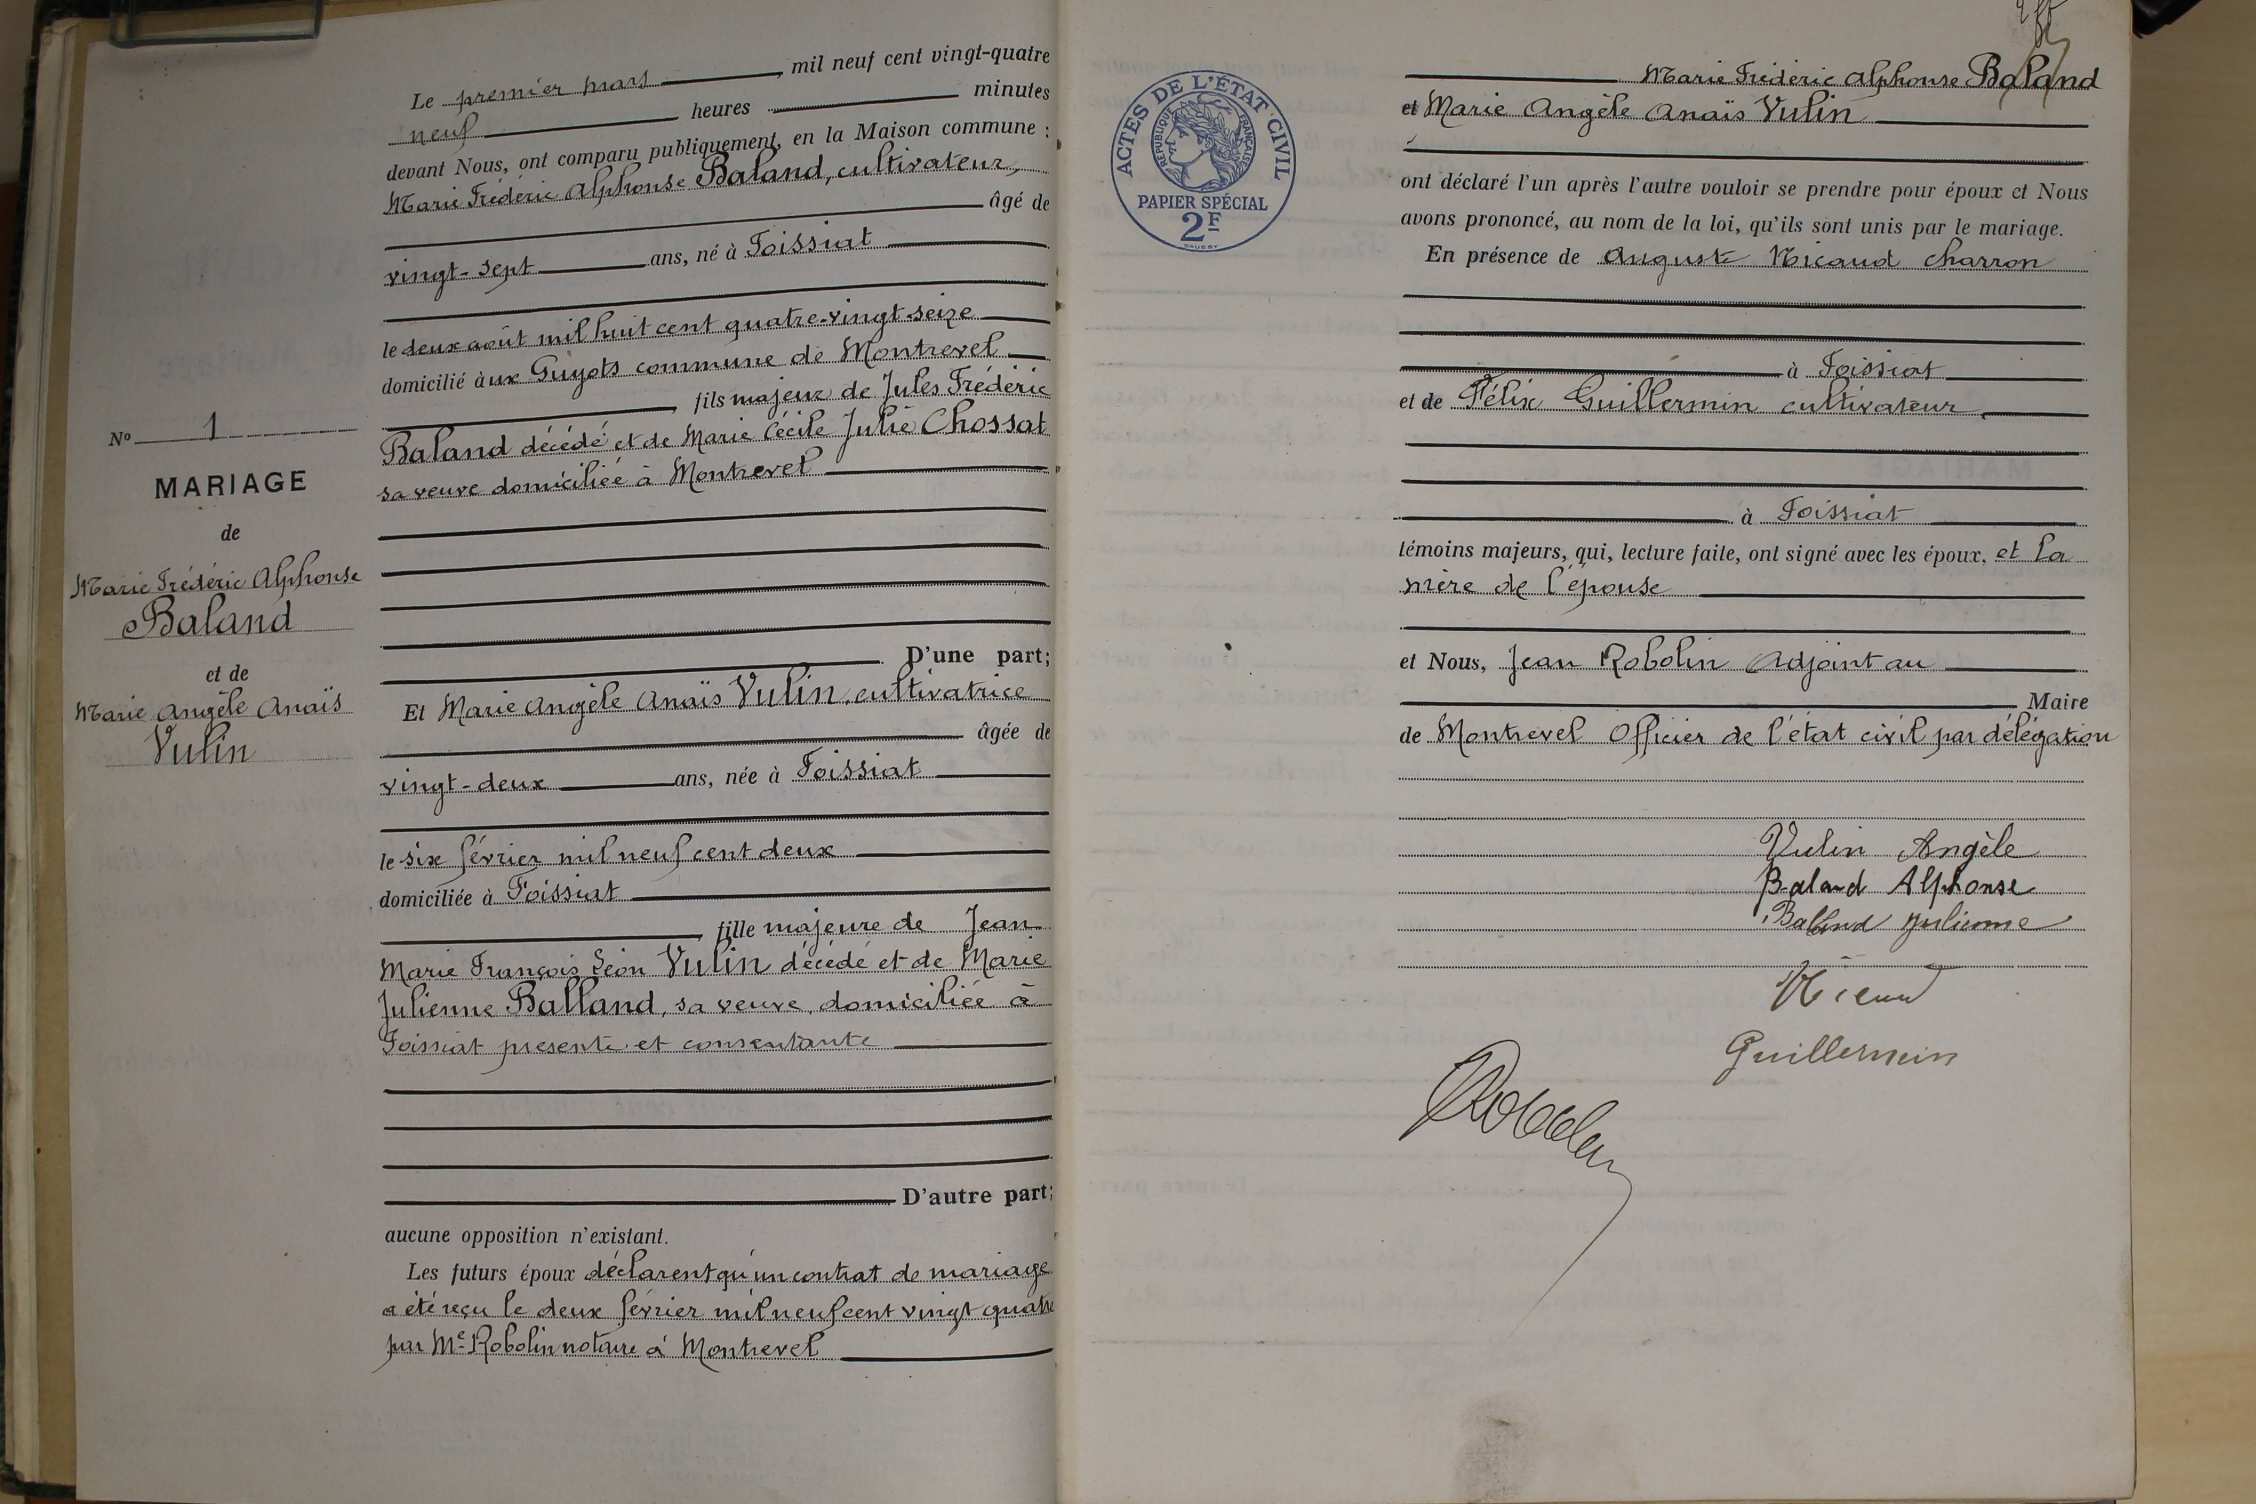 N° 1
MARIAGE
de
Marie Frédéric Alphonse
Baland
et de
Marie Angèle Anaïs
Vulin
Le premier mars, mil neuf cent vingt-quatre
neuf heures minutes
devant Nous, ont comparu publiquement, en la Maison commune :
Marie Frédéric Alphonse Baland, cultivateur,
âgé de
vingt-sept ans, né à Foissiat
le deux août mil huit cent quatre-vingt-seize
domicilié à ux Guyots commune de Montrevel
fils majeur de Jules Frédéric
Baland décédé et de Marie Cécile Julie Chossat
sa veuve domiciliée à Montrevel
D'une part;
Et Marie Angèle Anaïs Vulin, cultivatrice
âgée de
vingt-deux ans, née à Foissiat
le six février mil neuf cent deux
domiciliée à Foissiat
fille majeure de Jean
Marie François Léon Vulin décédé et de Marie
Julienne Balland, sa veuve, domiciliée à
Foissiat présente et consentante
D'autre part;
aucune opposition n'existant.
Les futurs époux déclarent qu'un contrat de mariage
a été reçu le deux février mil neuf cent vingt quatre
par Me Robolin notaire à Montrevel
ACTES DE L'ÉTAT CIVIL
RÉPUBLIQUE FRANÇAISE
PAPIER SPÉCIAL
2F
Marie Frédéric Alphonse Baland
et Marie Angèle Anaïs Vulin
ont déclaré l'un après l'autre vouloir se prendre pour époux et Nous
avons prononcé, au nom de la loi, qu'ils sont unis par le mariage.
En présence de Auguste Nicaud charron
à Foissiat
et de Félix Guillermin cultivateur
à Foissiat
témoins majeurs, qui, lecture faite, ont signé avec les époux, et la
mère de l'épouse
et Nous, Jean Robolin Adjoint au
Maire
de Montrevel Officier de l'état civil par délégation
Vulin Angèle
Baland Alphonse
Balland Julienne
Nicaud
Guillermin
Robolin